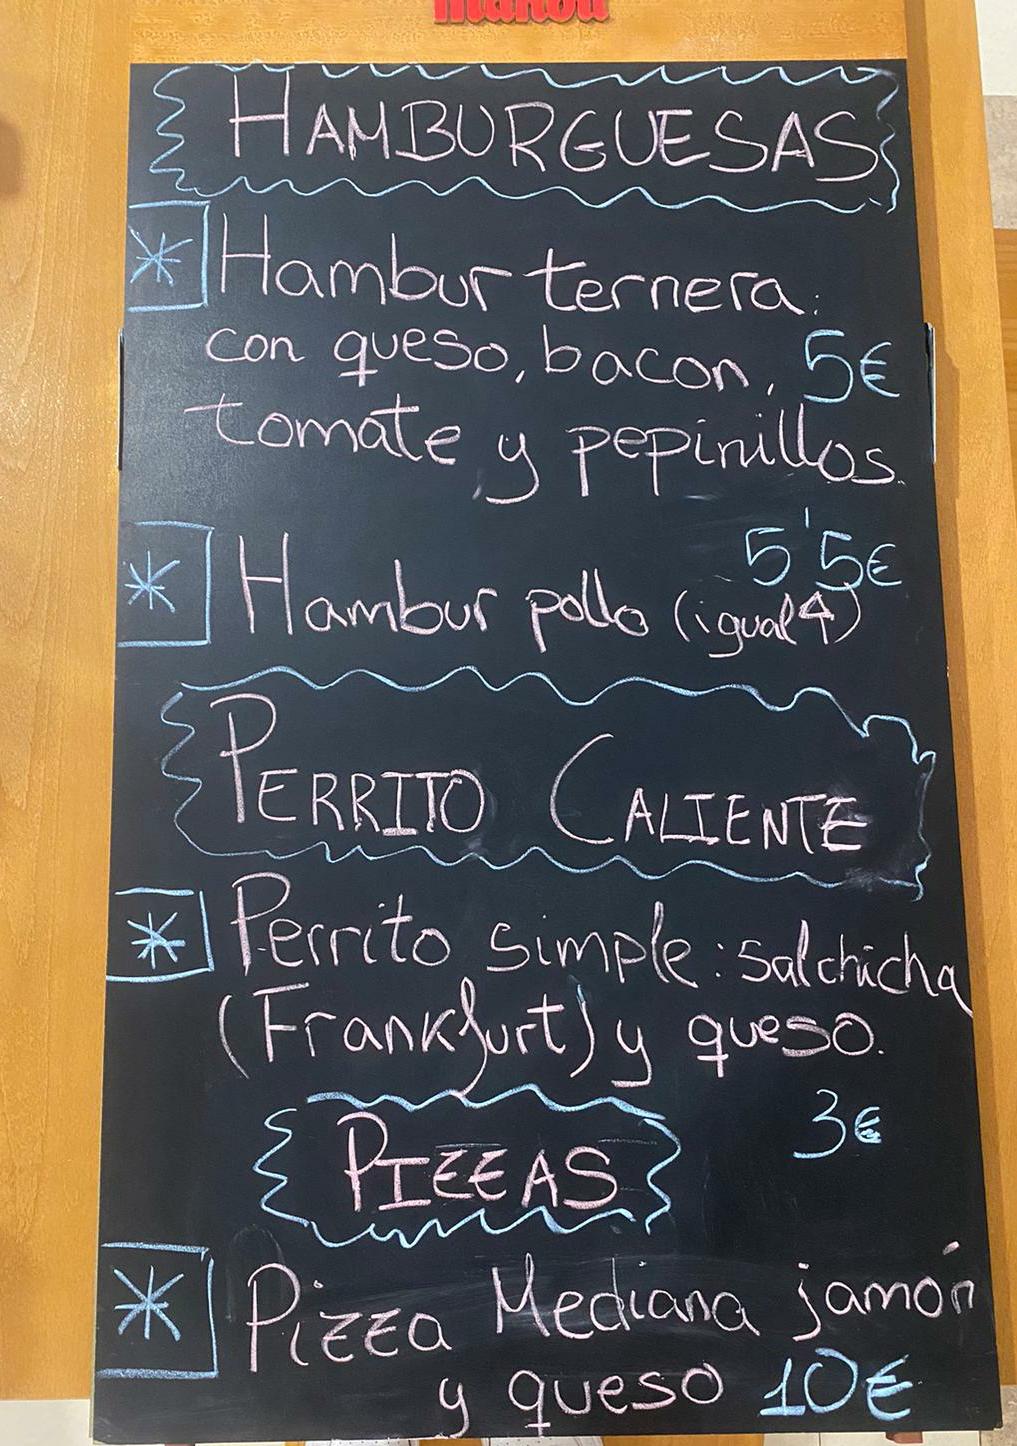 mahou
HAMBURGUESAS
* Hambur ternera:
con queso, bacon, 5€
tomate y pepinillos.
5'5€
* Hambur pollo (igual↑)
PERRITO CALIENTE
* Perrito simple: salchicha
(Frankfurt) y queso.
3€
PIZZAS
* Pizza Mediana jamón
y queso 10€